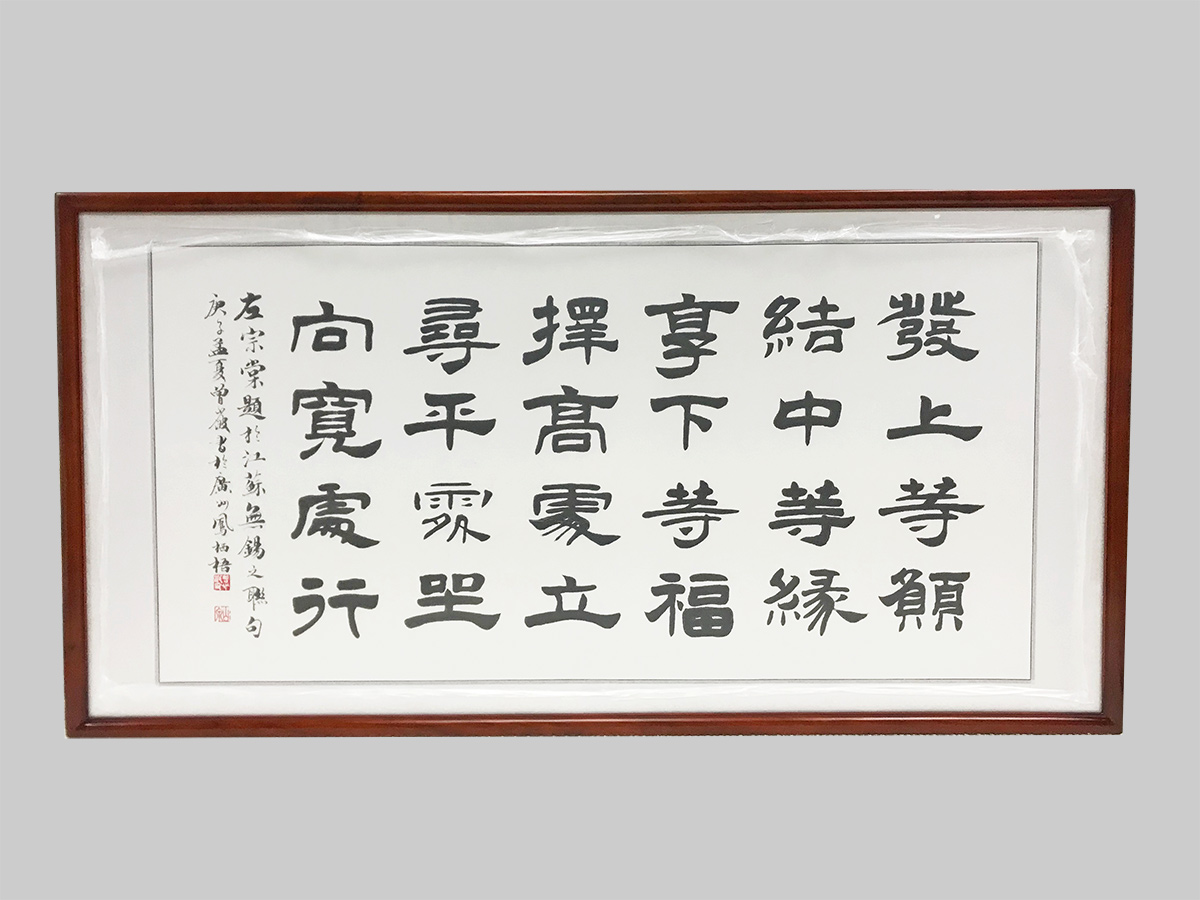 發上等願
結中等緣
享下等福
擇高處立
尋平處坐
向寬處行
左宗棠題於江蘇無錫之聯句
庚子孟夏曾嚴書於廣州鳳栖梧